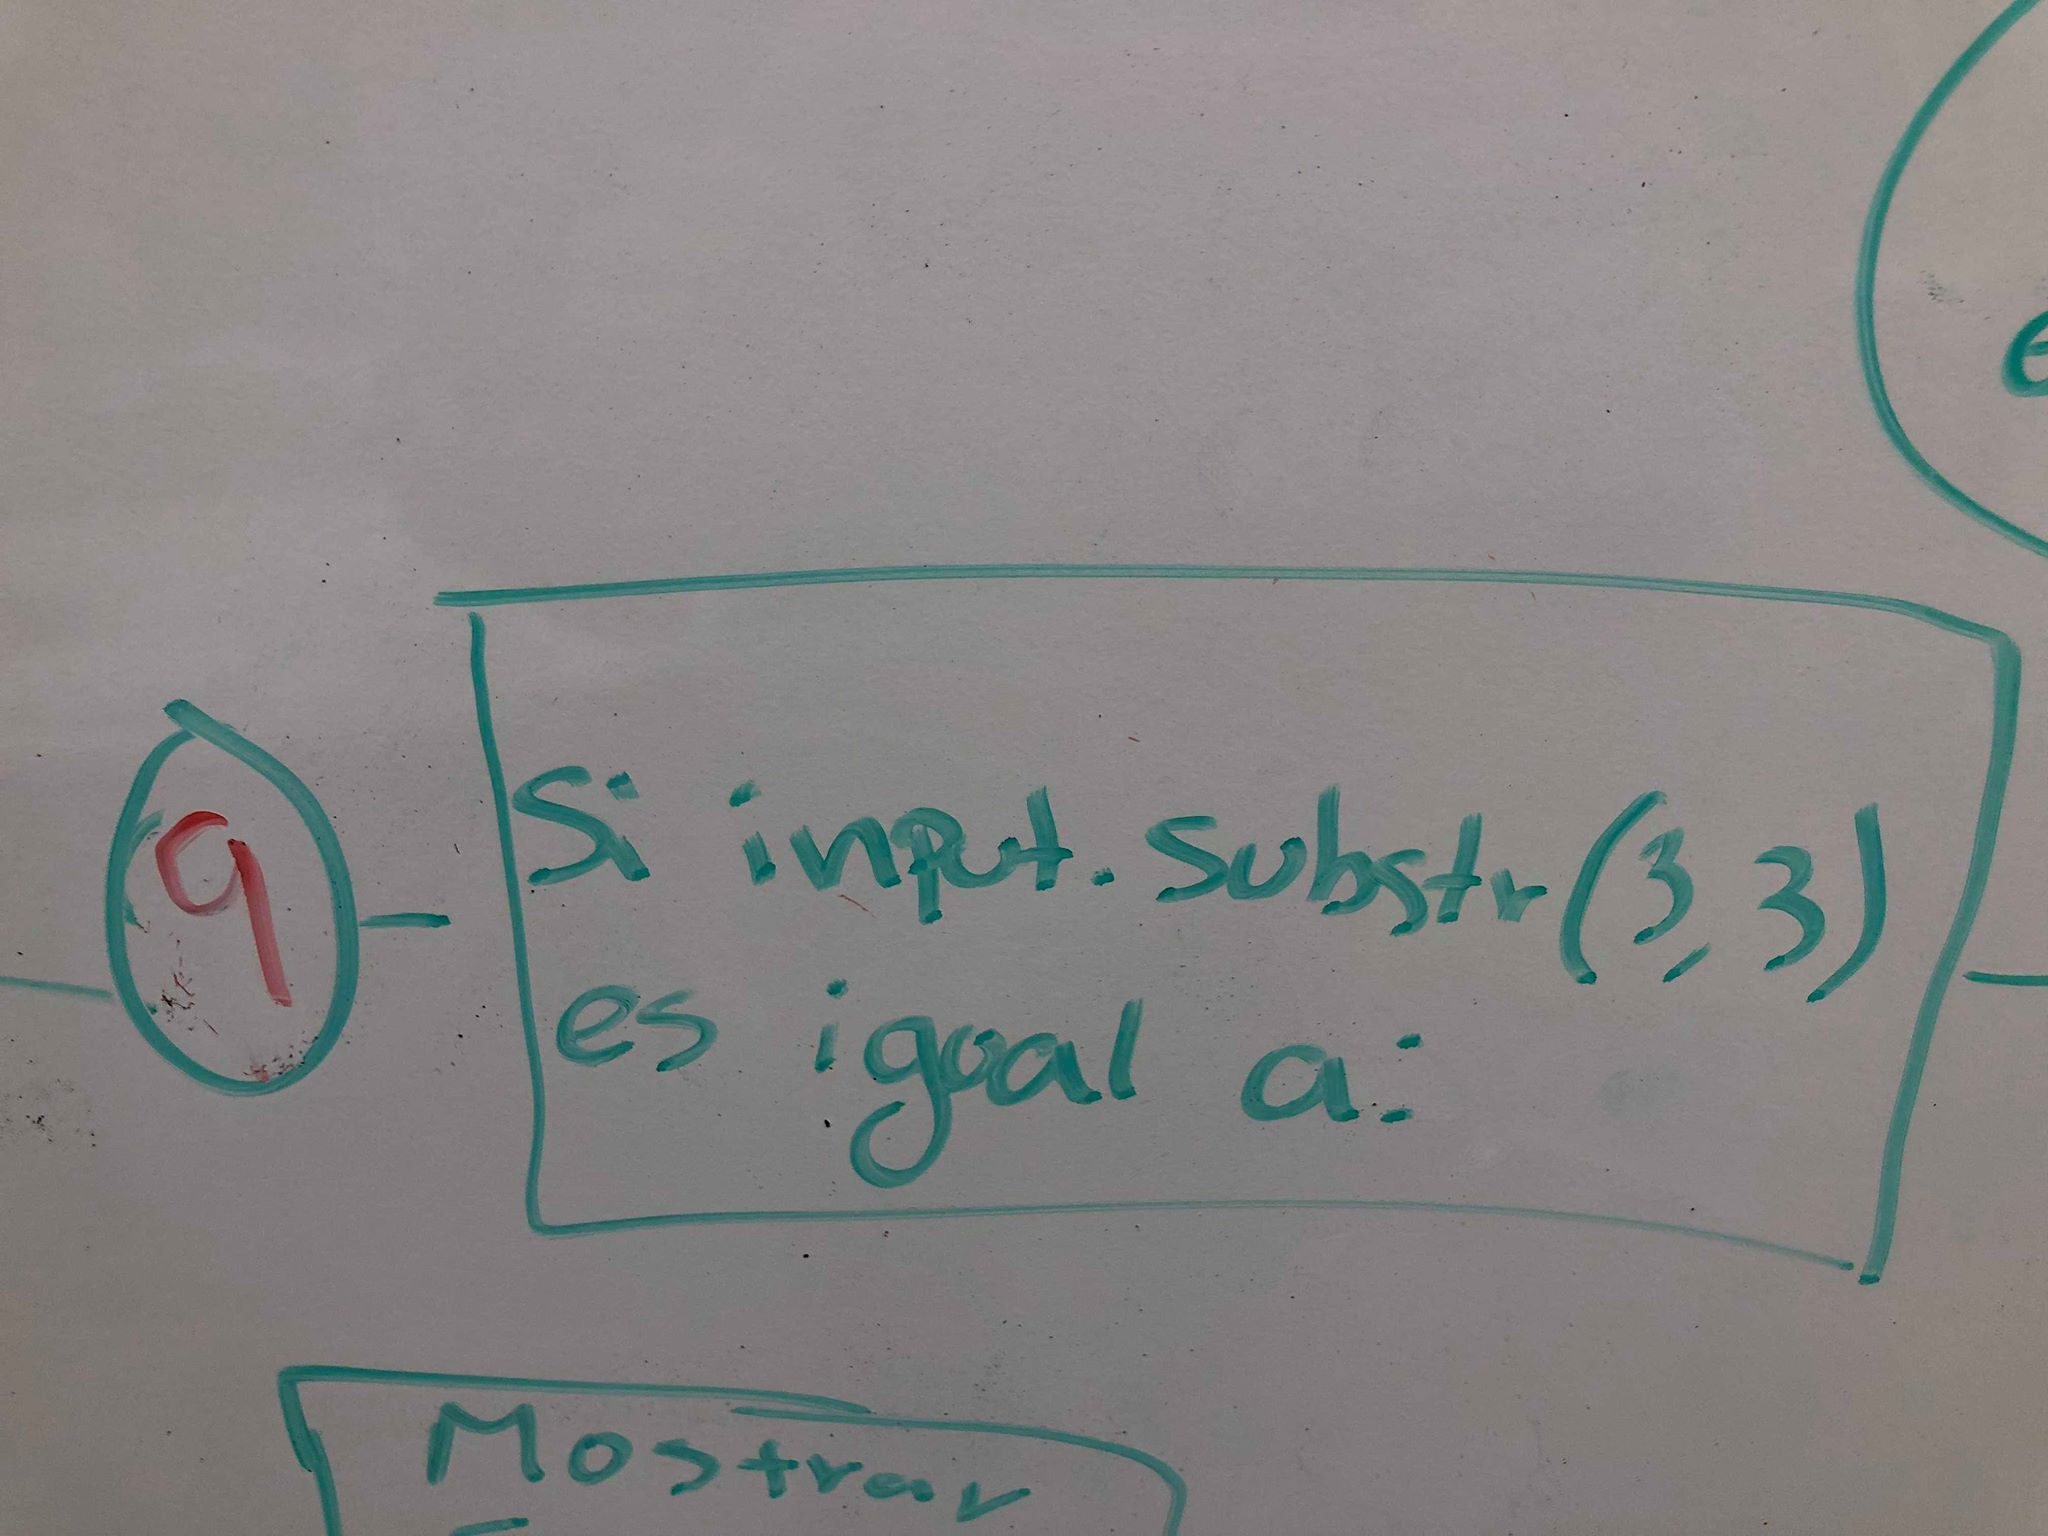 9
Si input.substr(3,3)
es igual a:
Mostrar